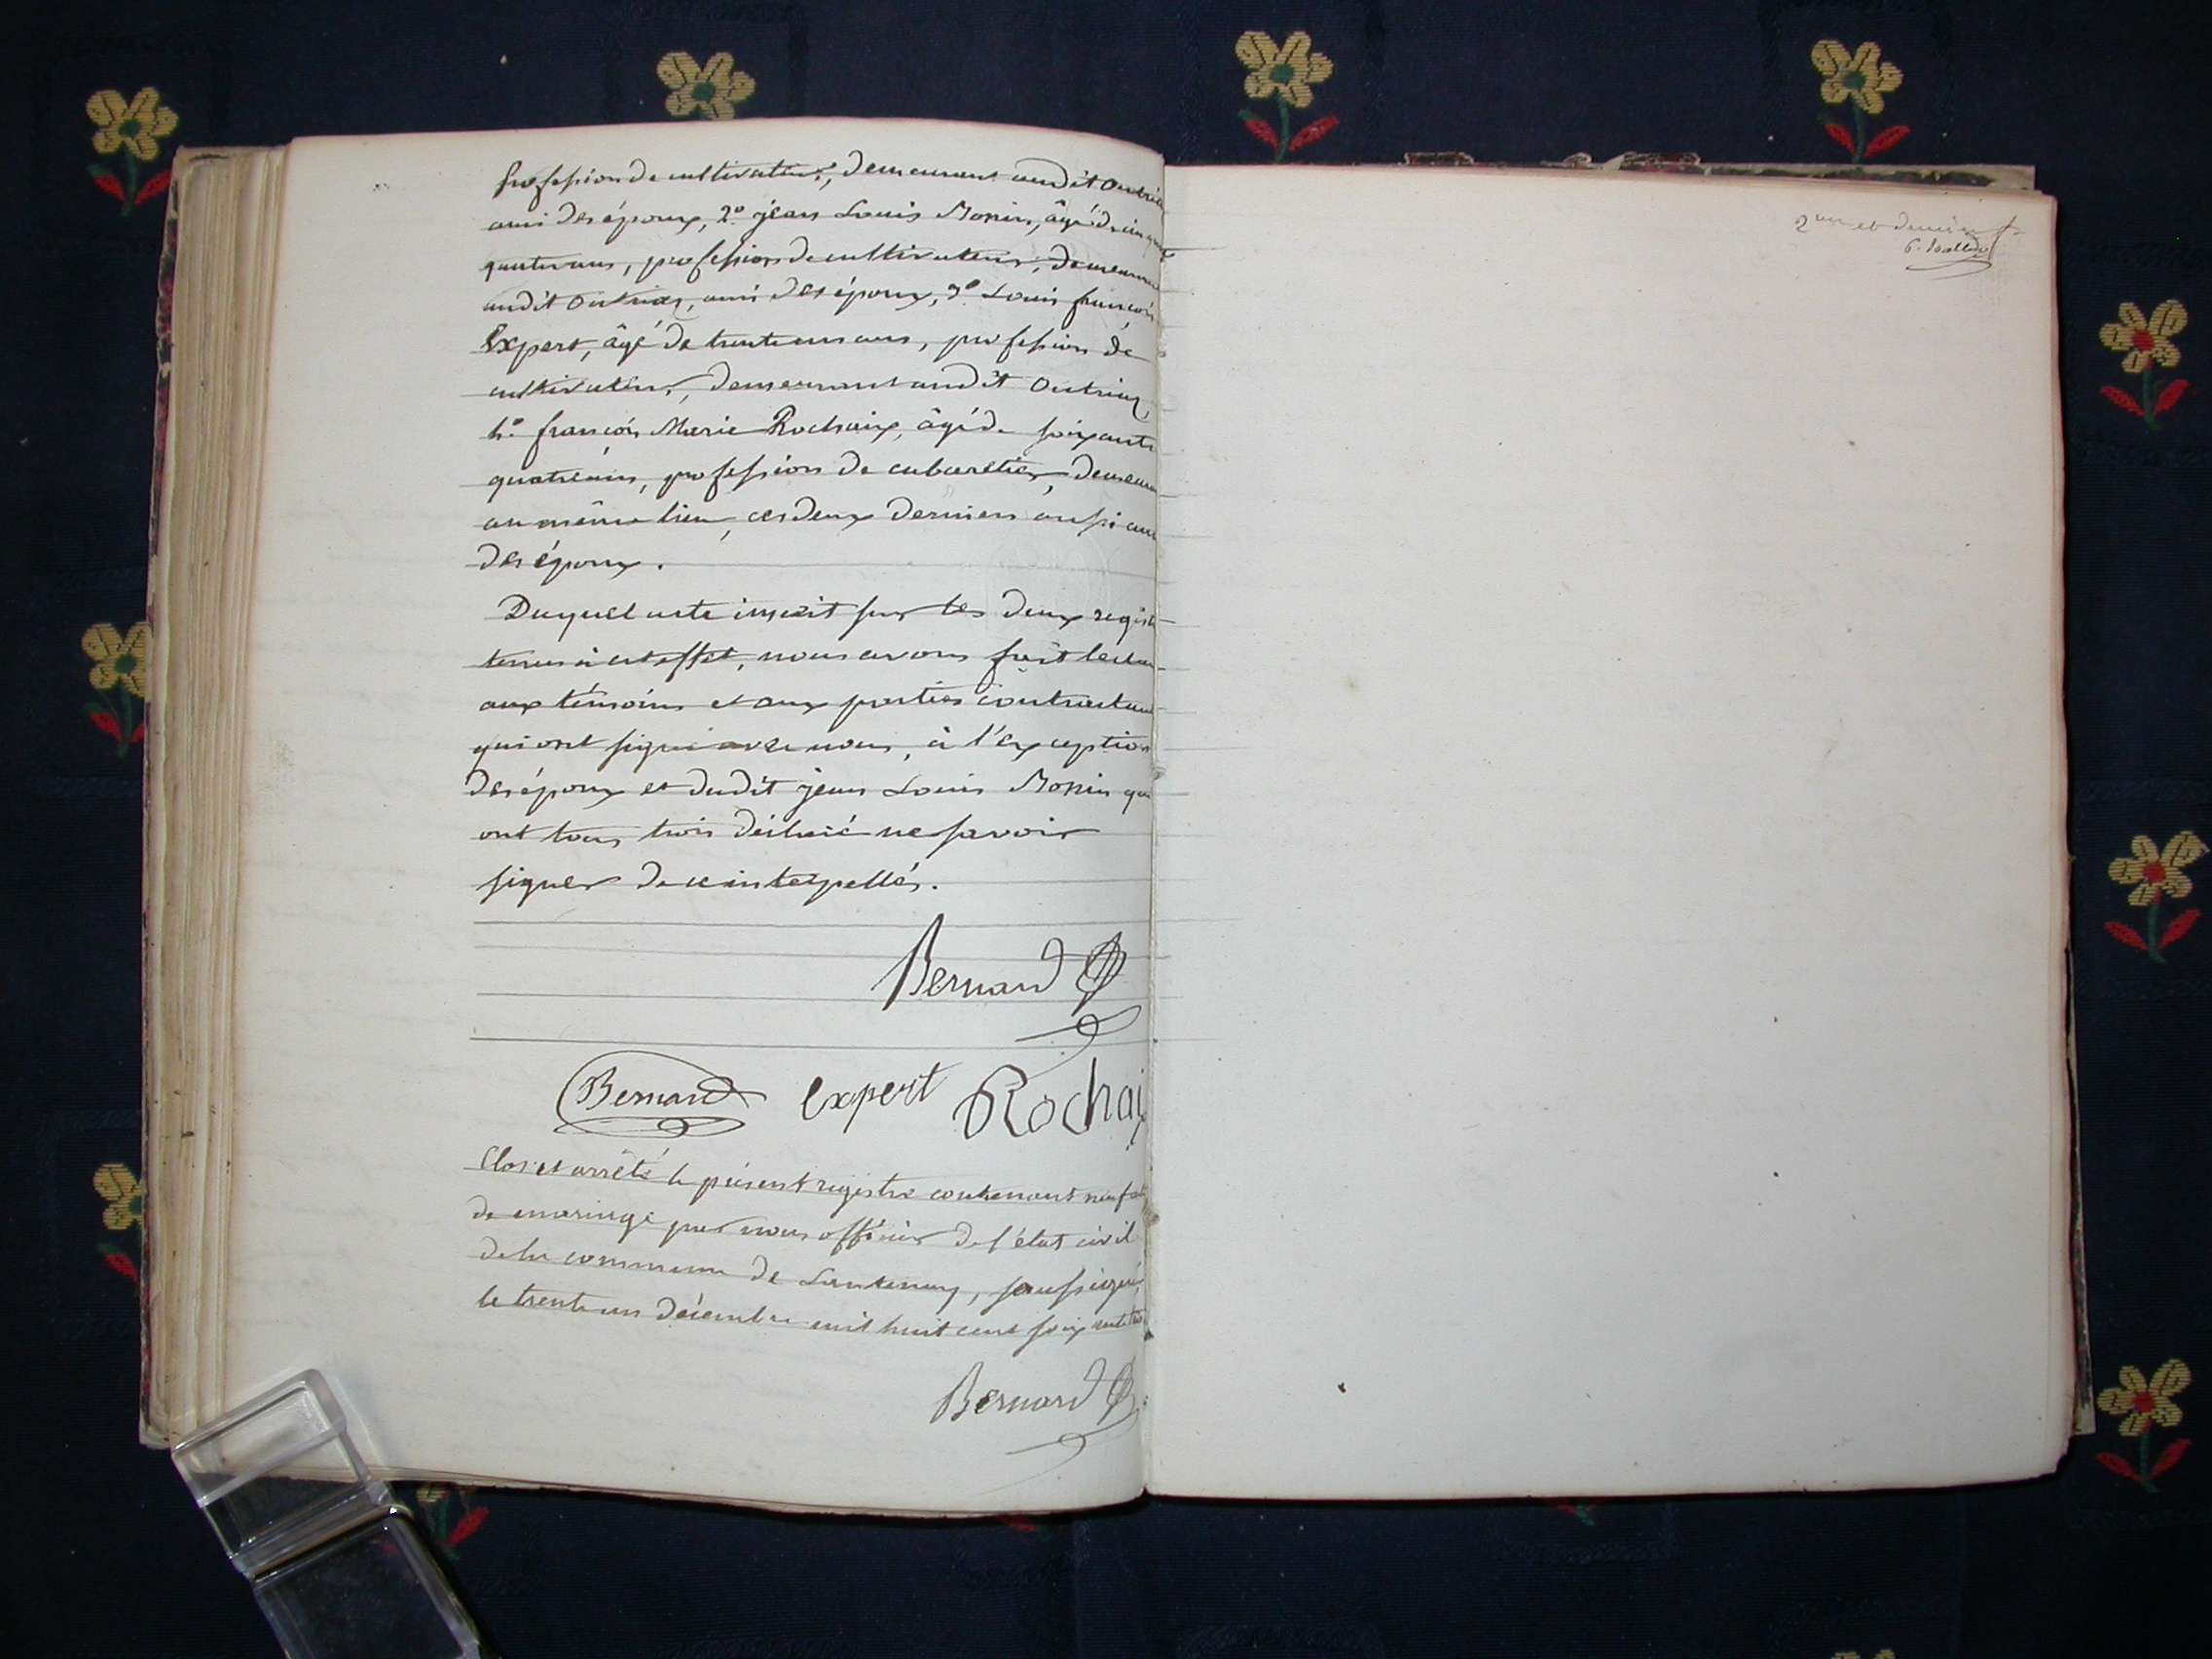 profession de cultivateur, demeurant audit Outriaz
ami des époux, 2º. jean Louis Monin, âgé de cinquante
quatre ans, profession de cultivateur, demeurant
audit Outriaz, ami des époux, 3º. Louis françois
Expert, âgé de trente un ans, profession de
cultivateur, demeurant audit Outriaz,
4º. françois Marie Rochaix, âgé de soixante
quatre ans, profession de cabaretier, demeurant
au même lieu, ces deux derniers aussi amis
des époux.
Duquel acte inscrit sur les deux regist
tenus à cet effet, nous avons fait lecture
aux témoins et aux parties contractan
qui ont signé avec nous, à l'exception
des époux et dudit jean Louis Monin qui
ont tous trois déclaré ne savoir
signer de ce interpellés.
Bernard
Bernard expert Rochaix
Clos et arrêté le présent registre contenant neuf actes
de mariage par nous officier de l'état civil
de la commune de Lantenay, soussigné,
le trente un décembre mil huit cent soixante
Bernard
2me et dernier f.